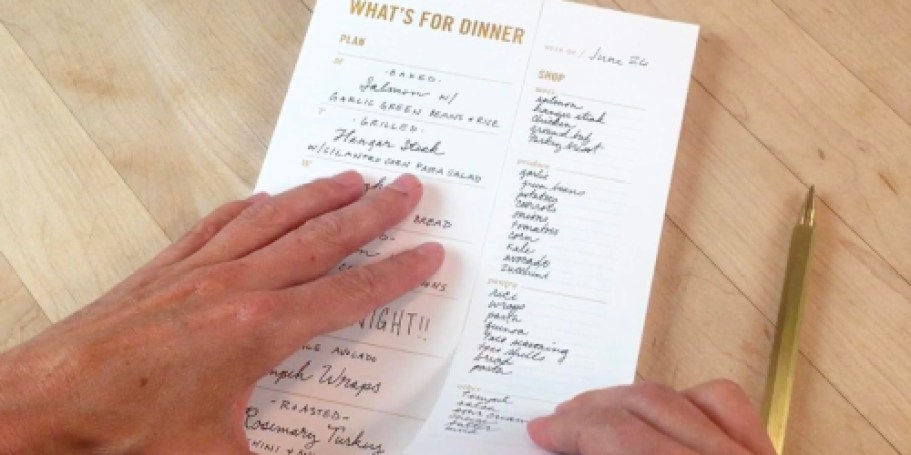 WHAT'S FOR DINNER
PLAN
M
-BAKED-
Salmon w/
GARLIC GREEN BEANS + RICE
T
-GRILLED-
Hanger Steak
W/CILANTRO CORN PASTA SALAD
W
BREAD
NIGHT!!
AVOCADO
Wraps
-ROASTED-
Rosemary Turkey
WEEK OF / June 26
SHOP
meat
salmon
hanger steak
chicken
ground beef
turkey breast
produce
garlic
green beans
potatoes
carrots
onions
tomatoes
corn
kale
avocado
zucchini
pantry
rice
wraps
pasta
quinoa
taco seasoning
taco shells
bread
pasta
other
tempeh
salsa
sour cream
butter
milk